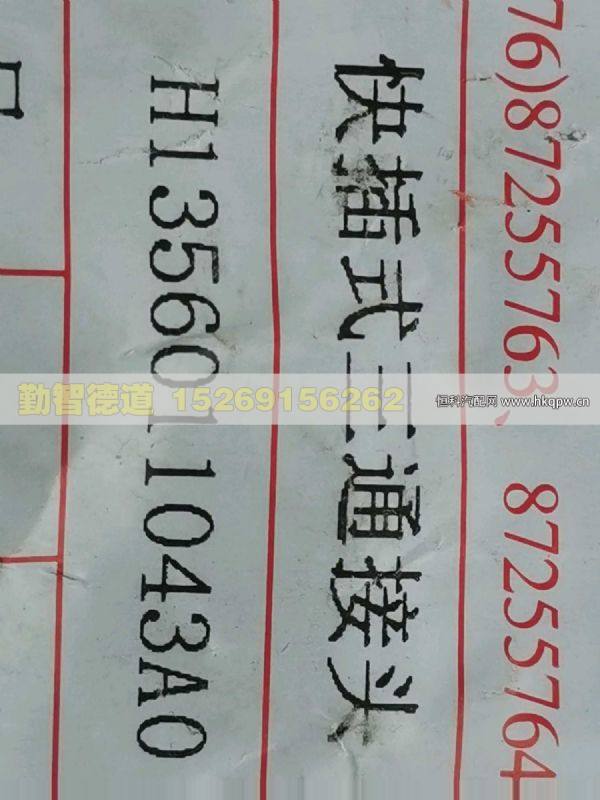 76)87255763、 87255764
快插式三通接头
H1356011043A0
勤智德道 15269156262
恒科汽配网 www.hkqpw.cn